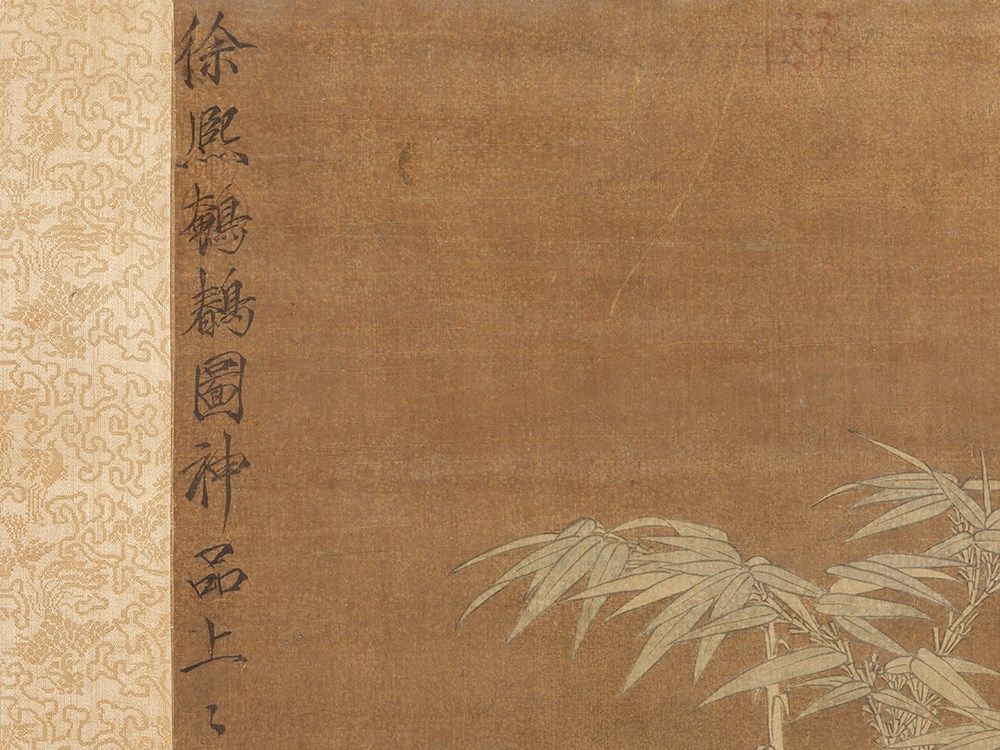 徐熙鵪鶉圖神品上〻